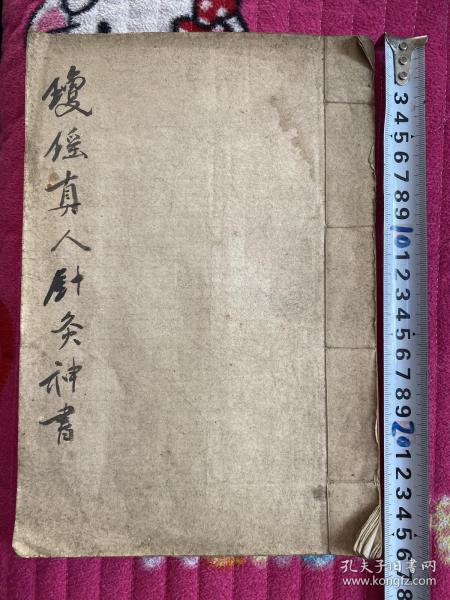 瓊傜真人針灸神書
3 4 5 6 7 8 9 10 1 2 3 4 5 6 7 8 9 20 1 2 3 4 5 6 7 8
孔夫子旧书网
www.kongfz.com